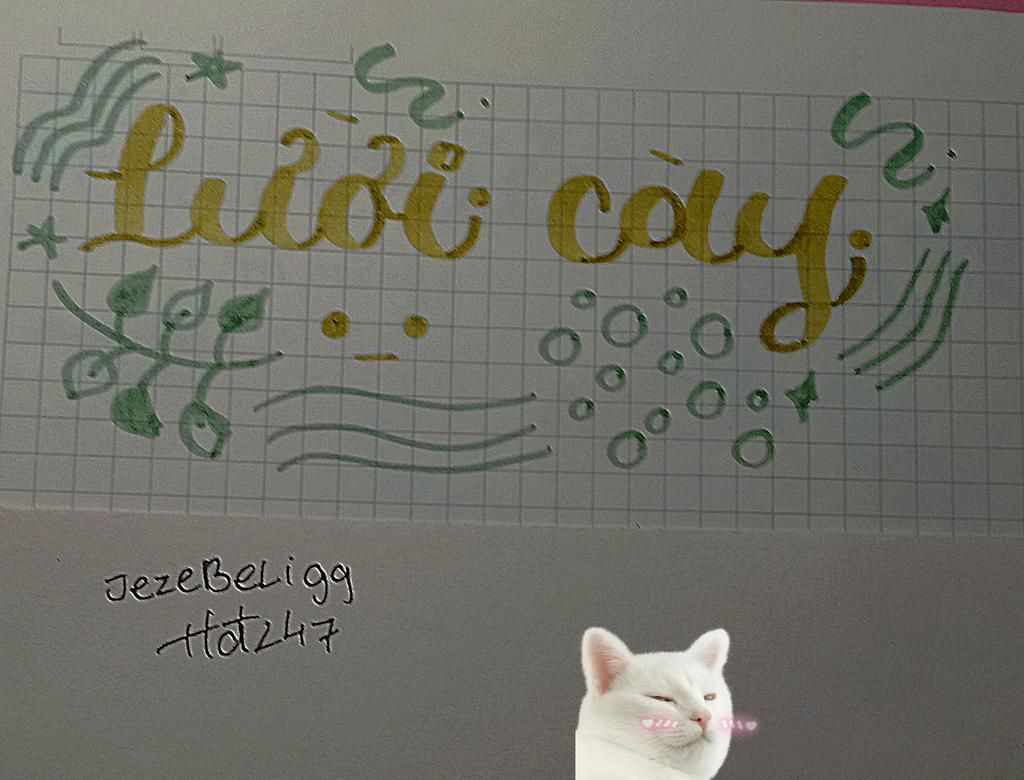 Lười cày
JezeBeLigg
Hoț247